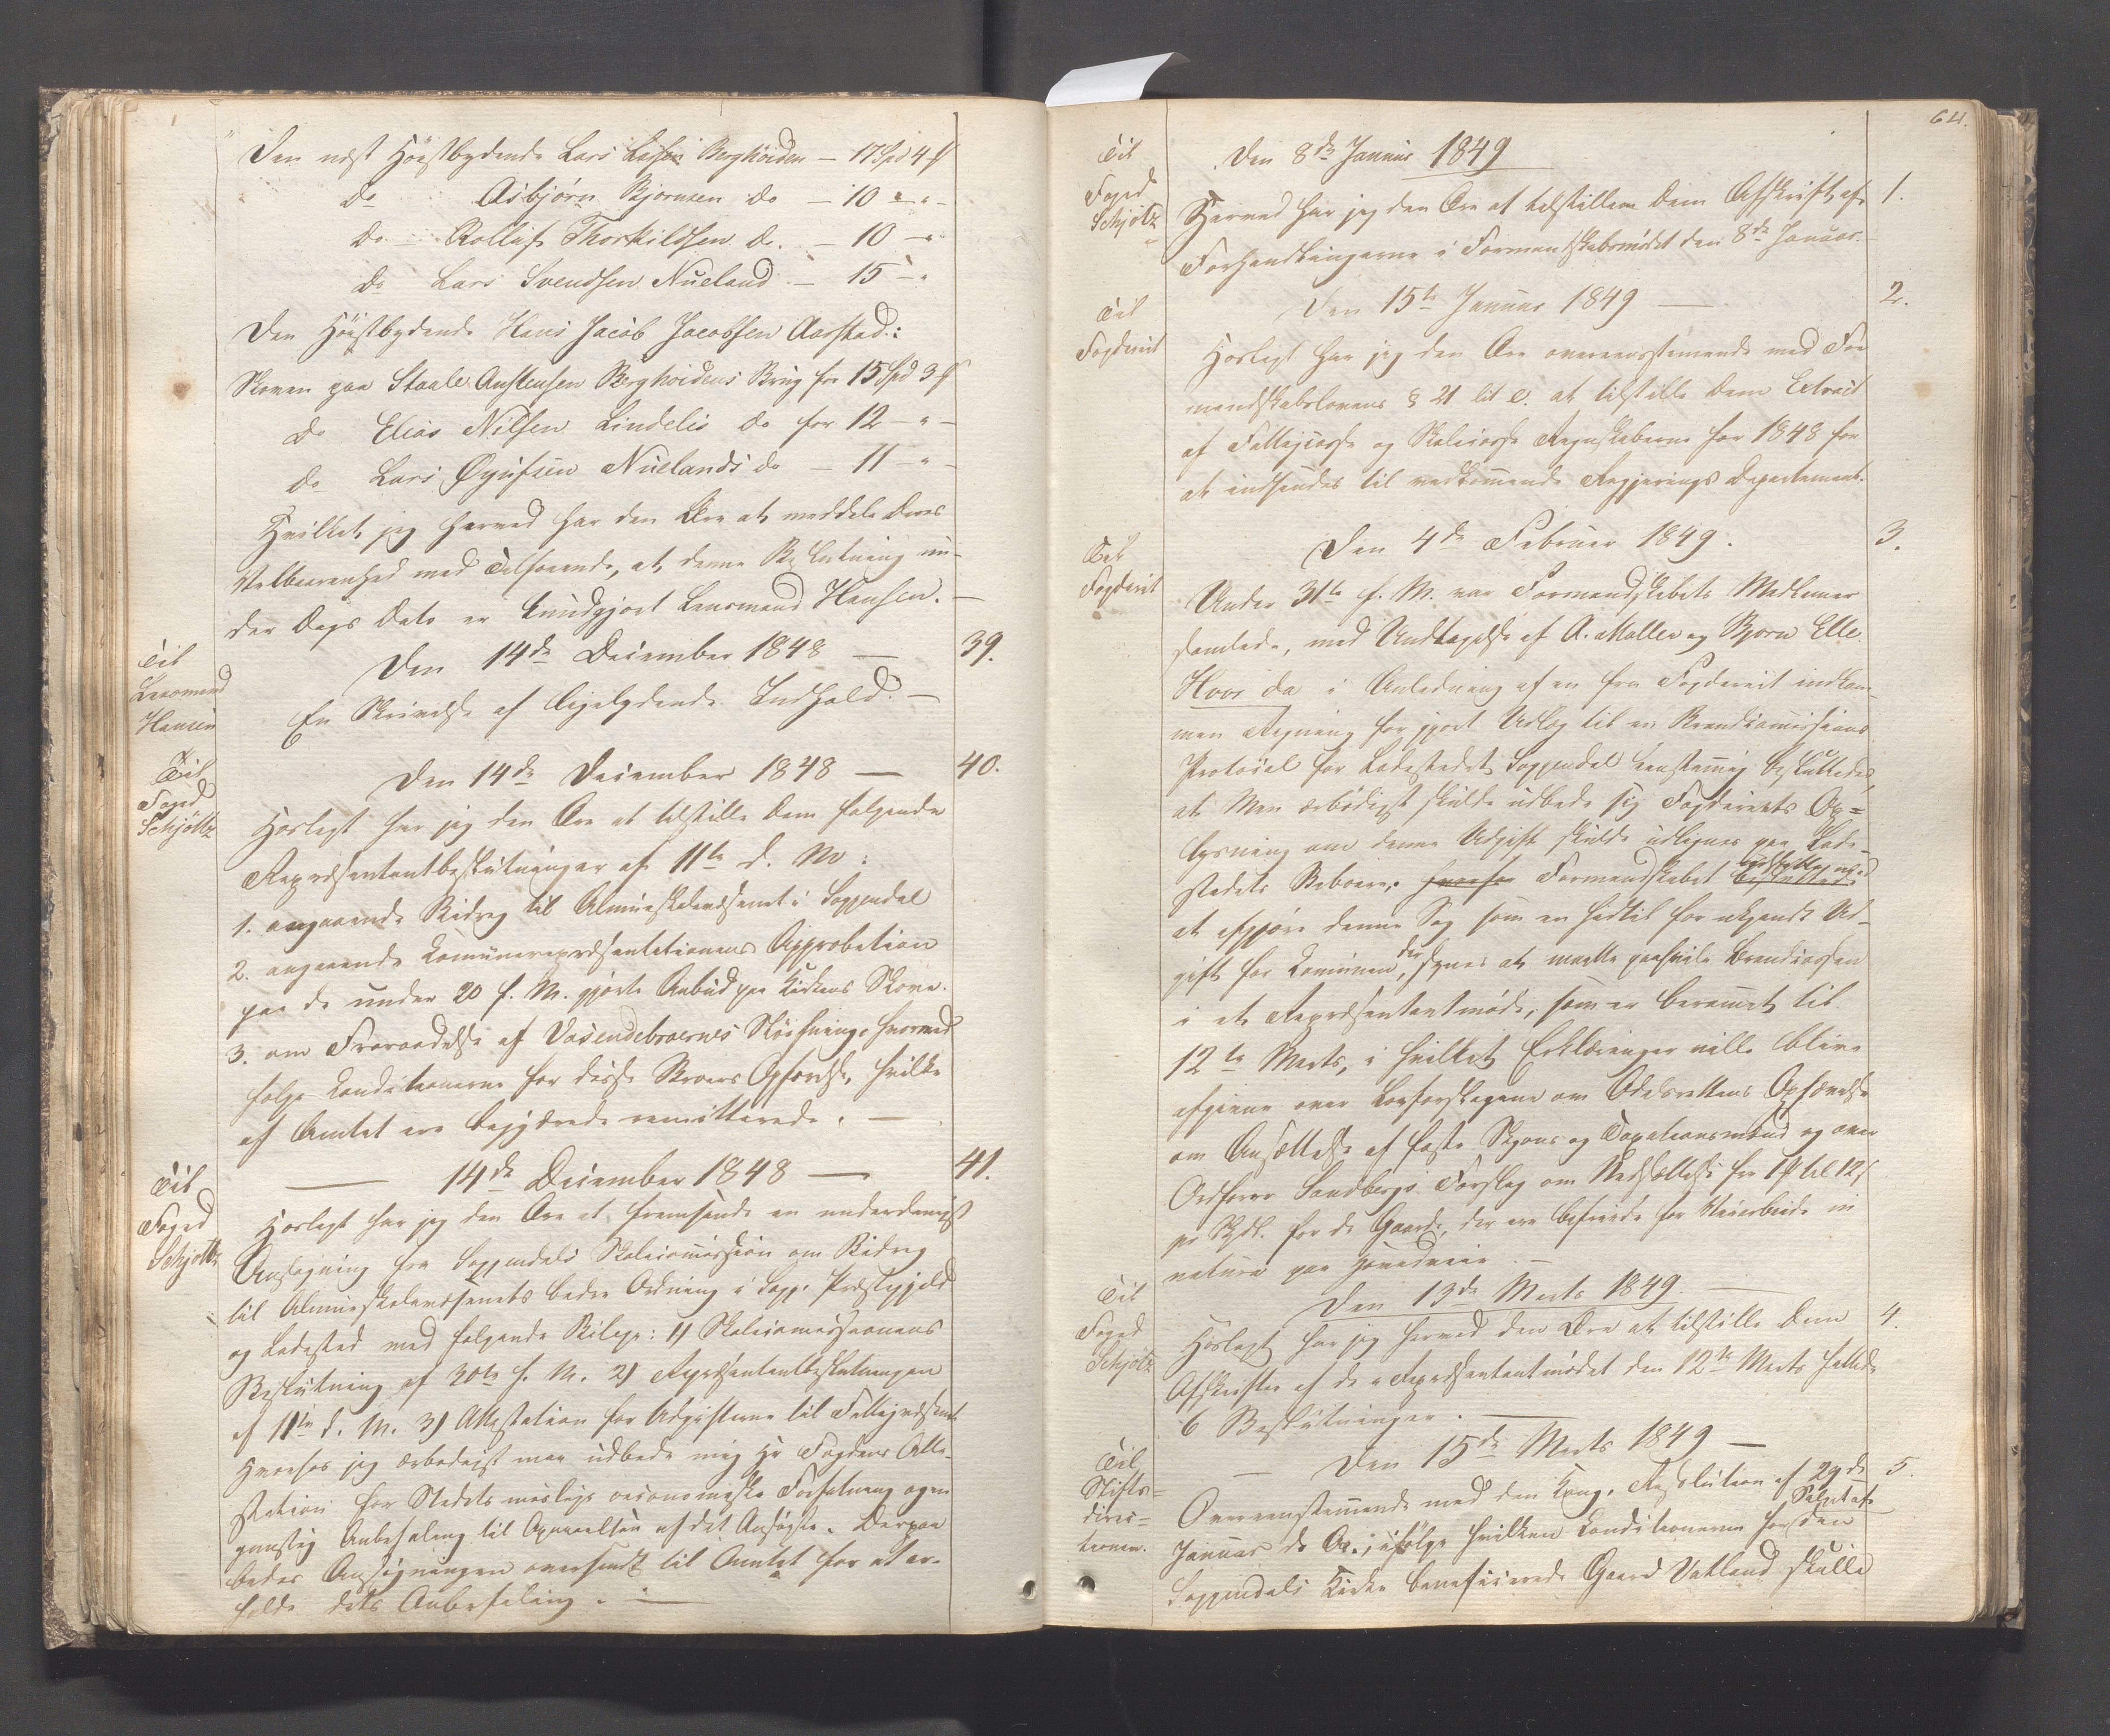 Den næst Høistbydende Lars Larsen Berghöiden – 17 Spd 4 ß
do Asbjørn Bjørnsen do – 10 " –
do Rolluf Thorkildsen do. – 10 –
do Lars Svendsen Nueland – 15 –
Den Høistbydende Hans Jacob Jacobsen Aarstad:
Skoven paa Staale Anstensen Berghoidens Brug for 15 Spd 3 ß
do Elias Nilsen Lindelis do for 12 – " –
do Lars Øyufsen Nuelands do – 11 – " –
Hvilket jeg herved har den Ære at meddele Deres
Velbaarenhed med Tilføiende, at denne Beslutning un-
der Dags Dato er kundgjort Lensmand Hansen. –
Til
Lensmand
Hansen
Den 14de December 1848 — 39.
En Skrivelse af ligelydende Indhold. –
Til
Foged
Schjøttz
Den 14de December 1848 — 40.
Hoslagt har jeg den Ære at tilstille Dem følgende
Repræsentantbeslutninger af 11te d. M:
1. angaaende Bidrag til Almueskolevæsenet i Soggendal
2. angaaende Communerepræsentationens Approbation
paa de under 20 f. M. gjorte Anbud paa Kirkens Skove.
3. om Fraraadelse af Vasendebroernes Sløifning, hvorved
følge Conditionerne for disse Broers Opførelse, hvilke
af Amtet ere begjærede remitterede. —
Til
Foged
Schjøttz
— 14de December 1848 — 41.
Hoslagt har jeg den Ære at fremsende en underdanigst
Ansøgning fra Soggendals Skolecommission om Bidrag
til Almueskolevæsenets bedre Ordning i Sogg. Præstegjeld
og Ladested med følgende Bilage: 1) Skolecommissionens
Beslutning af 20de f. M. 2) Repræsentantbeslutningen
af 11te d. M. 3) Attestation for Udgifterne til Fattigvæsenet
Hvorhos jeg ærbødigst maa udbede mig Hr Fogdens Atte-
station for Stedets mislige oeconomiske Forfatning og en
gunstig Anbefaling til Opnaaelsen af det Ansøgte. Derpaa
bedes Ansøgningen oversendt til Amtet for at er-
holde dets Anbefaling. —
64.
Til
Foged
Schjøtz
Den 8de Januar 1849
Herved har jeg den Ære at tilstille Dem Afskrift af 1.
Forhandlingerne i Formandskabsmødet den 8de Januar.
Til
Fogderiet
Den 15de Januar 1849 — 2.
Hoslagt har jeg den Ære overeensstemmende med For-
mandskabslovens § 21 lit e. at tilstille Dem Extract
af Fattigcasse og Skolecasse Regnskaberne for 1848 for
at indsendes til vedkommende Regjerings Departement.
Til
Fogderiet
Den 4de Februar 1849. 3.
Under 31te f. M. var Formandskabets Medlemer
samlede, med Undtagelse af A. Møller og Bjørn Elle.
Hvor da i Anledning af en fra Fogderiet indkom-
men Regning for gjort Udlæg til en Brandcommissions
Protocol for Ladestedet Soggendal eenstemmig besluttedes,
at Man ærbødigst skulde udbede sig Fogderiets Op=
lysning om denne Udgift skulde udlignes paa Lade-
stedets Beboere, hvorfor Formandskabet
at afgjøre denne Sag som en hidtil for ukjendt Ud-
gift for Communen, der synes at maatte paahvile Brandcassen
i et Repræsentantmøde, som er berammet til
12te Marts, i hvilket Erklæringer ville blive
afgivne over Lovforslagene om Odelsrettens Ophævelse
om Ansættelse af faste Skjøns og Taxationsmænd og over
Ordfører Sandbergs Forslag om Nedsættelse fra 1 ß til 12 ß
pr Skyld. for de Gaarde, der ere befriede for Veiarbeide in
natura paa Hovedveie. –
Til
Foged
Schjøtz
Den 13de Marts 1849.
Hoslagt har jeg herved den Ære at tilstille Dem 4.
Afskrifter af de i Repræsentantmødet den 12te Marts fattede
6 Beslutninger. —
Til
Stifts-
direc=
tionen.
— Den 15de Marts 1849 —
Overeensstemmende med den Kong. Resolution af 29de 5.
Januar d. A., ifølge hvilken Conditionerne for Salget af den
Soggendals Kirke beneficerede Gaard Vatland skulle